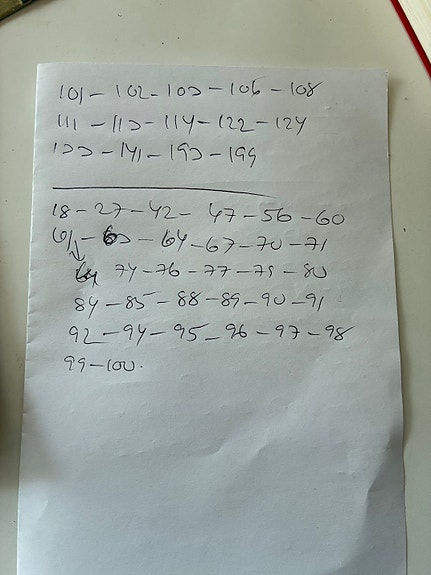 101 - 102 - 103 - 106 - 108
111 - 113 - 114 - 122 - 124
133 - 141 - 193 - 199
18 - 27 - 42 - 47 - 56 - 60
61 - 63 - 64 - 67 - 70 - 71
74 - 76 - 77 - 79 - 80
84 - 85 - 88 - 89 - 90 - 91
92 - 94 - 95 - 96 - 97 - 98
99 - 100.